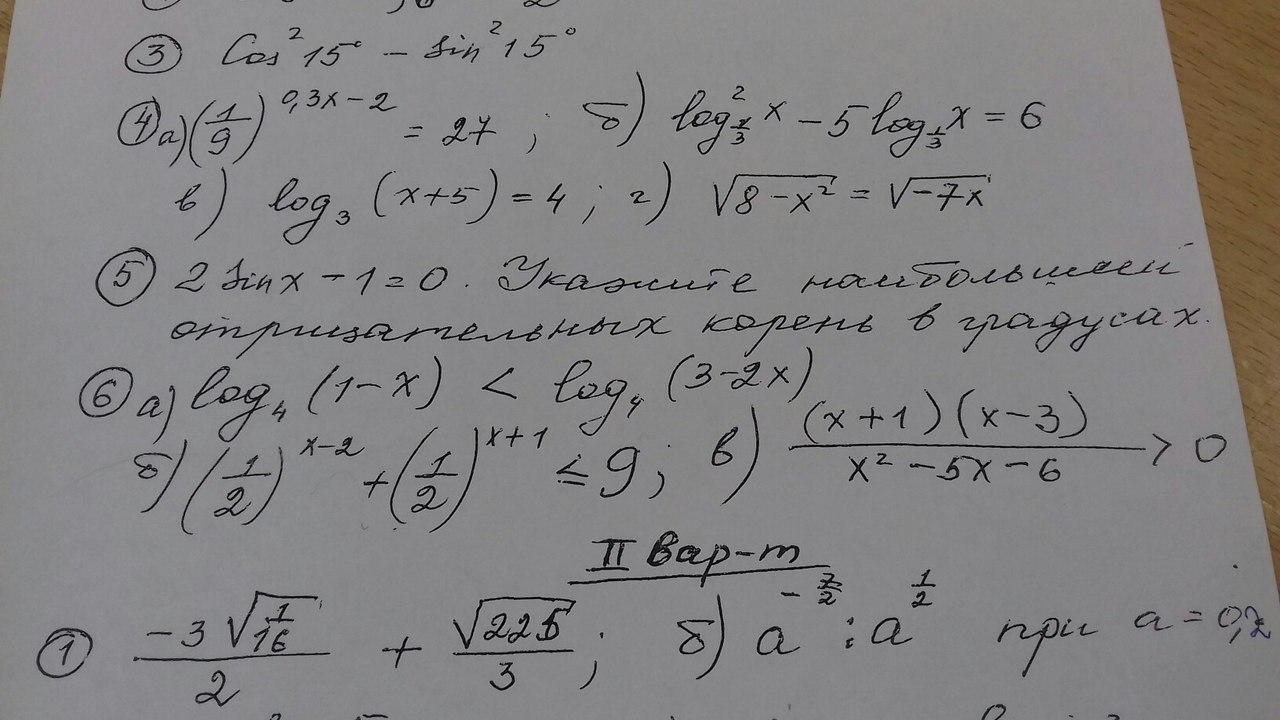 ③ Cos²15° − sin²15°
④ а) (1/9)^(0,3x−2) = 27 ; б) log²_(1/3) x − 5 log_(1/3) x = 6
в) log₃ (x+5) = 4 ; г) √(8−x²) = √(−7x)
⑤ 2 sin x − 1 = 0. Укажите наибольший
отрицательных корень в градусах.
⑥ а) log₄ (1−x) < log₄ (3−2x)
б) (1/2)^(x−2) + (1/2)^(x+1) ≤ 9 ; в) (x+1)(x−3) / (x² − 5x − 6) > 0
II вар-т
① (−3√(1/16)) / 2 + √225 / 3 ; б) a^(−7/2) : a^(1/2) при a = 0,2